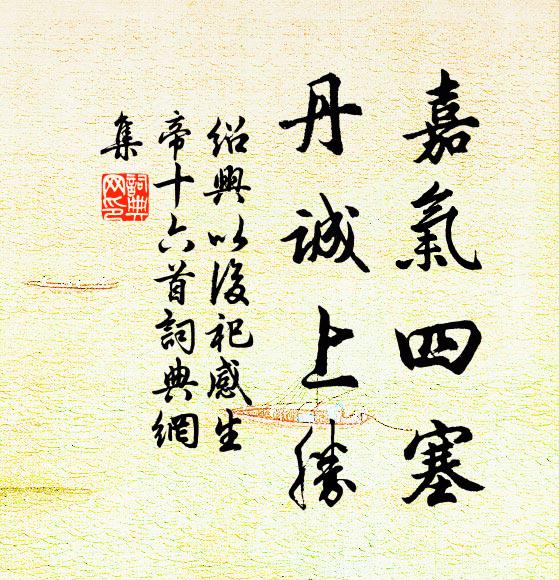 嘉氣四塞
丹誠上勝
紹興以後祀感生
帝十六首詞典網
集
詞典网印